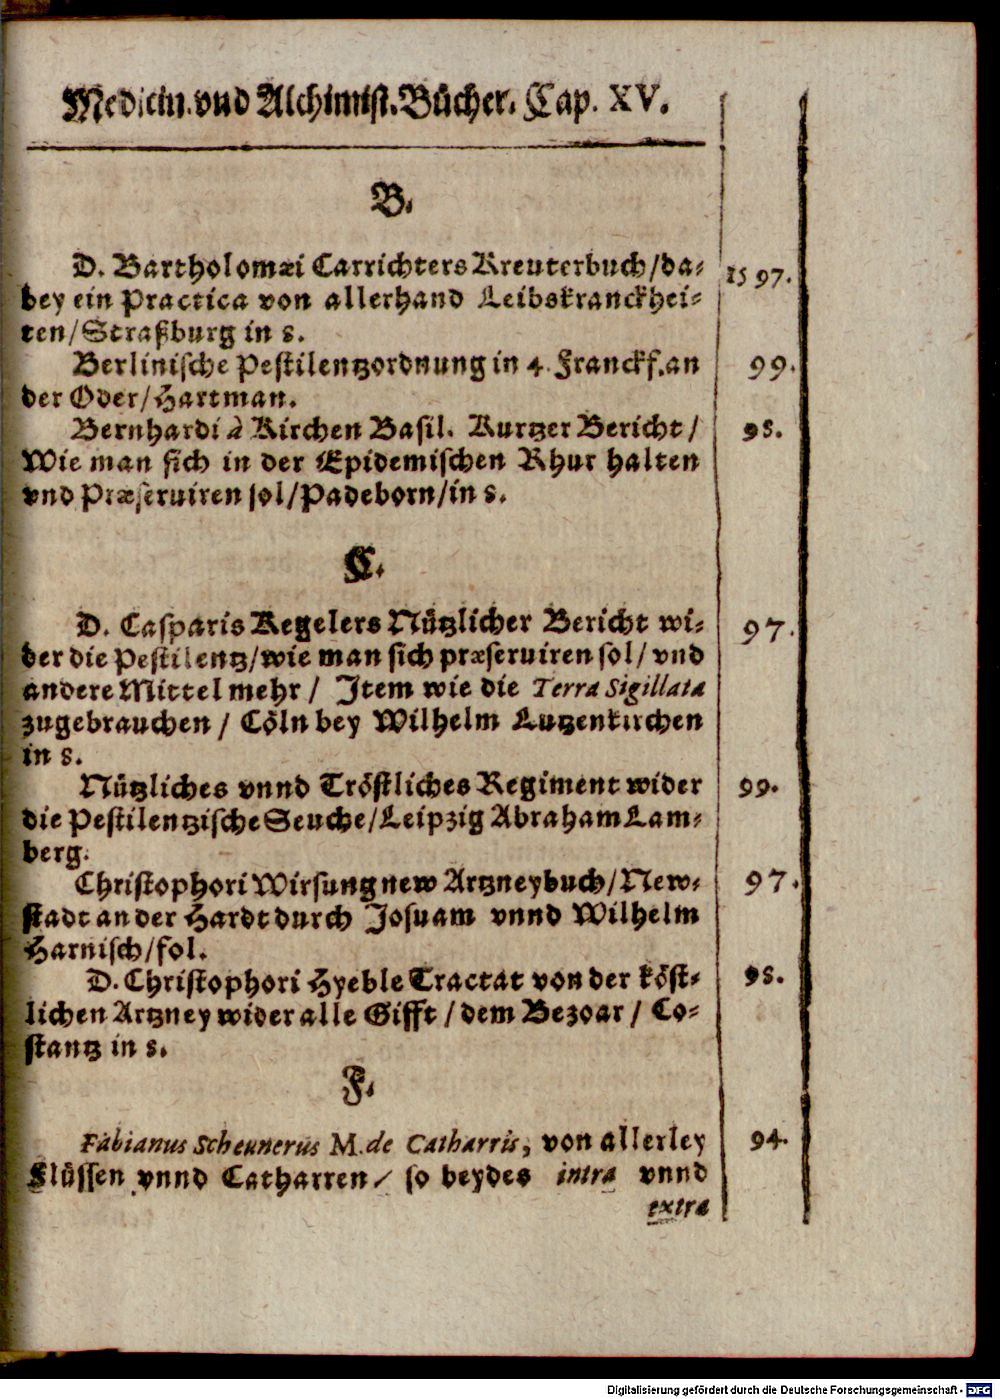 Medicin. vnd Alchimist. Bücher. Cap. XV.
B.
D. Bartholomæi Carrichters Kreuterbuch/da- 1597.
bey ein Practica von allerhand Leibskranckhei-
ten/Straßburg in 8.
Berlinische Pestilentzordnung in 4. Franckf. an 99.
der Oder/Hartman.
Bernhardi à Kirchen Basil. Kurtzer Bericht/ 98.
Wie man sich in der Epidemischen Rhur halten
vnd Præseruiren sol/Padeborn/in 8.
C.
D. Casparis Kegelers Nützlicher Bericht wi- 97.
der die Pestilentz/wie man sich præseruiren sol/ vnd
andere Mittel mehr / Item wie die Terra Sigillata
zugebrauchen / Cöln bey Wilhelm Lutzenkirchen
in 8.
Nützliches vnnd Tröstliches Regiment wider 99.
die Pestilentzische Seuche/Leipzig Abraham Lam-
berg.
Christophori Wirsung new Artzneybuch/New- 97.
stadt an der Hardt durch Josuam vnnd Wilhelm
Harnisch/fol.
D. Christophori Hyeble Tractat von der köst- 98.
lichen Artzney wider alle Gifft / dem Bezoar / Co-
stantz in 8.
F.
Fabianus Scheunerus M. de Catharris, von allerley 94.
Flüssen vnnd Catharren/ so beydes intra vnnd
extra
Digitalisierung gefördert durch die Deutsche Forschungsgemeinschaft - DFG